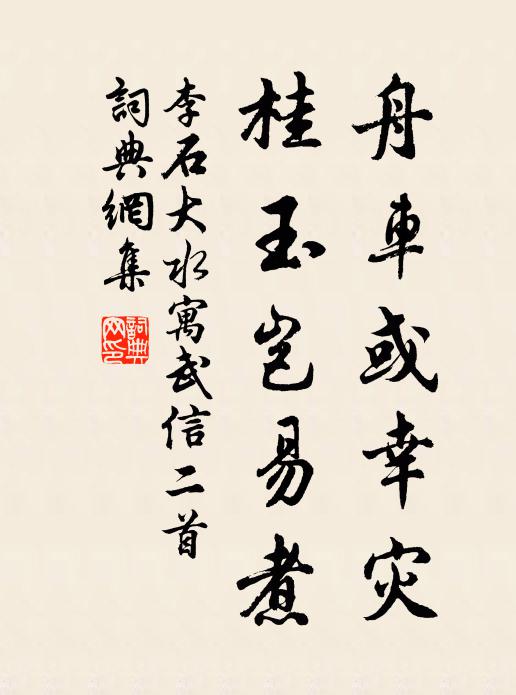 舟車或幸灾
桂玉岂易煮
李石大水寓武信二首
詞典網集
詞典网印